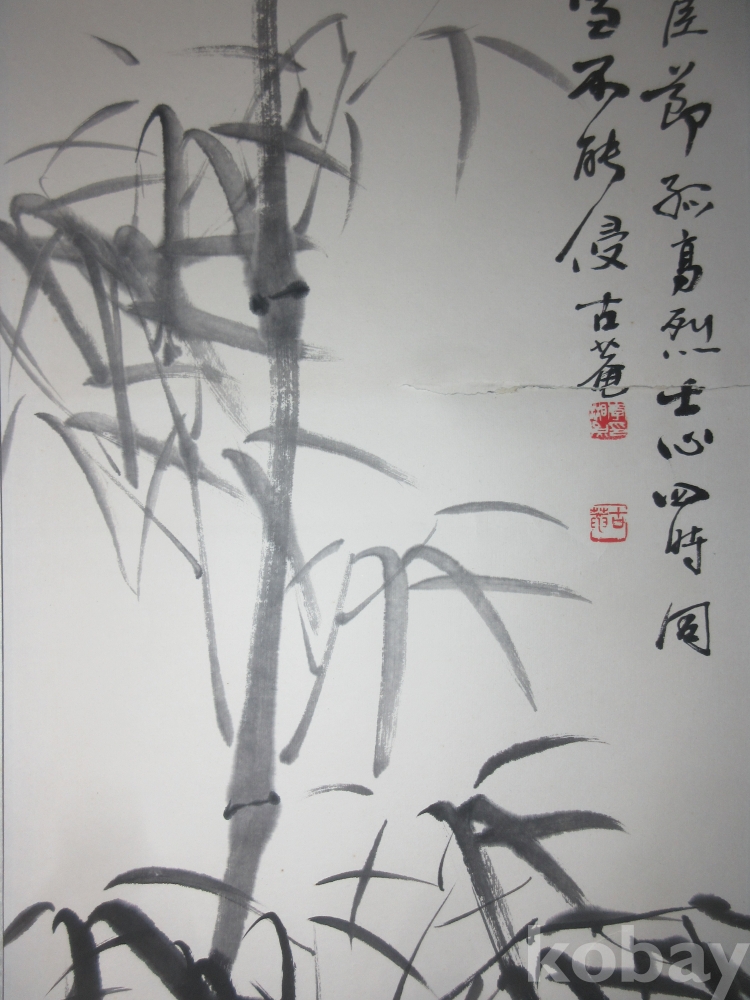 臣節孤高烈士心四時同
雪不能侵古菴
古菴
kobay